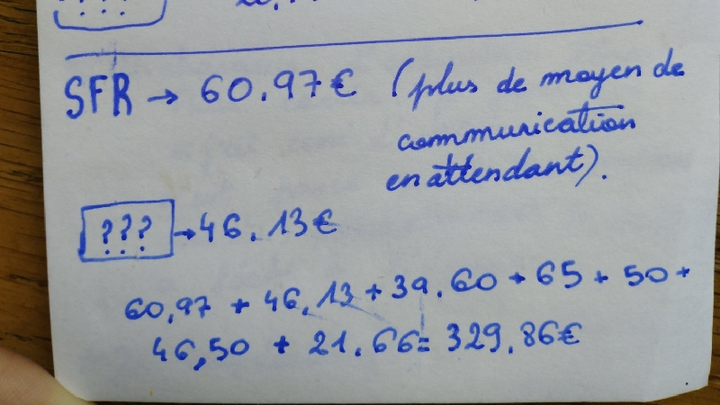 ???
SFR → 60.97€ (plus de moyen de
communication
en attendant).
??? → 46.13€
60,97 + 46,13 + 39.60 + 65 + 50 +
46,50 + 21.66 = 329.86€